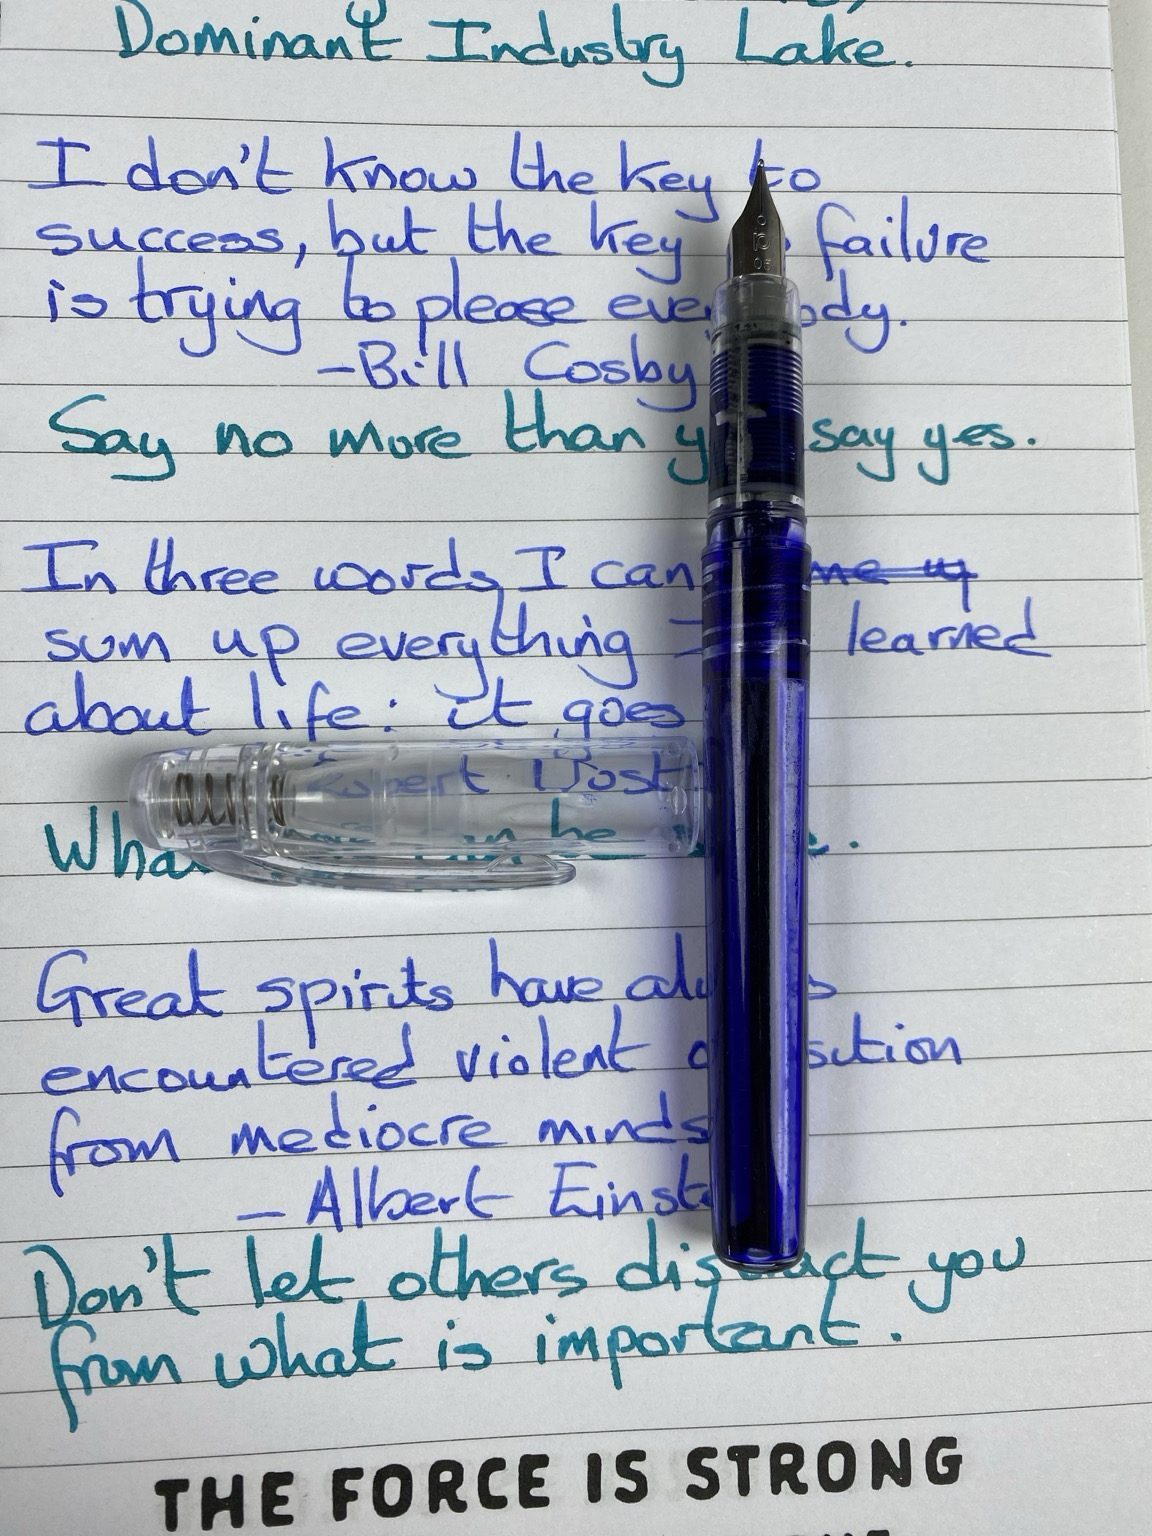 Dominant Industry Lake.
I don't know the key to
success, but the key failure
is trying to please
-Bill Cosby
Say no more than say yes.
In three words, I can
sum up everything learned
about life: it goes
be
Great spirits have
encountered violent
from mediocre minds
- Albert
Don't let others distract you
from what is important.
THE FORCE IS STRONG